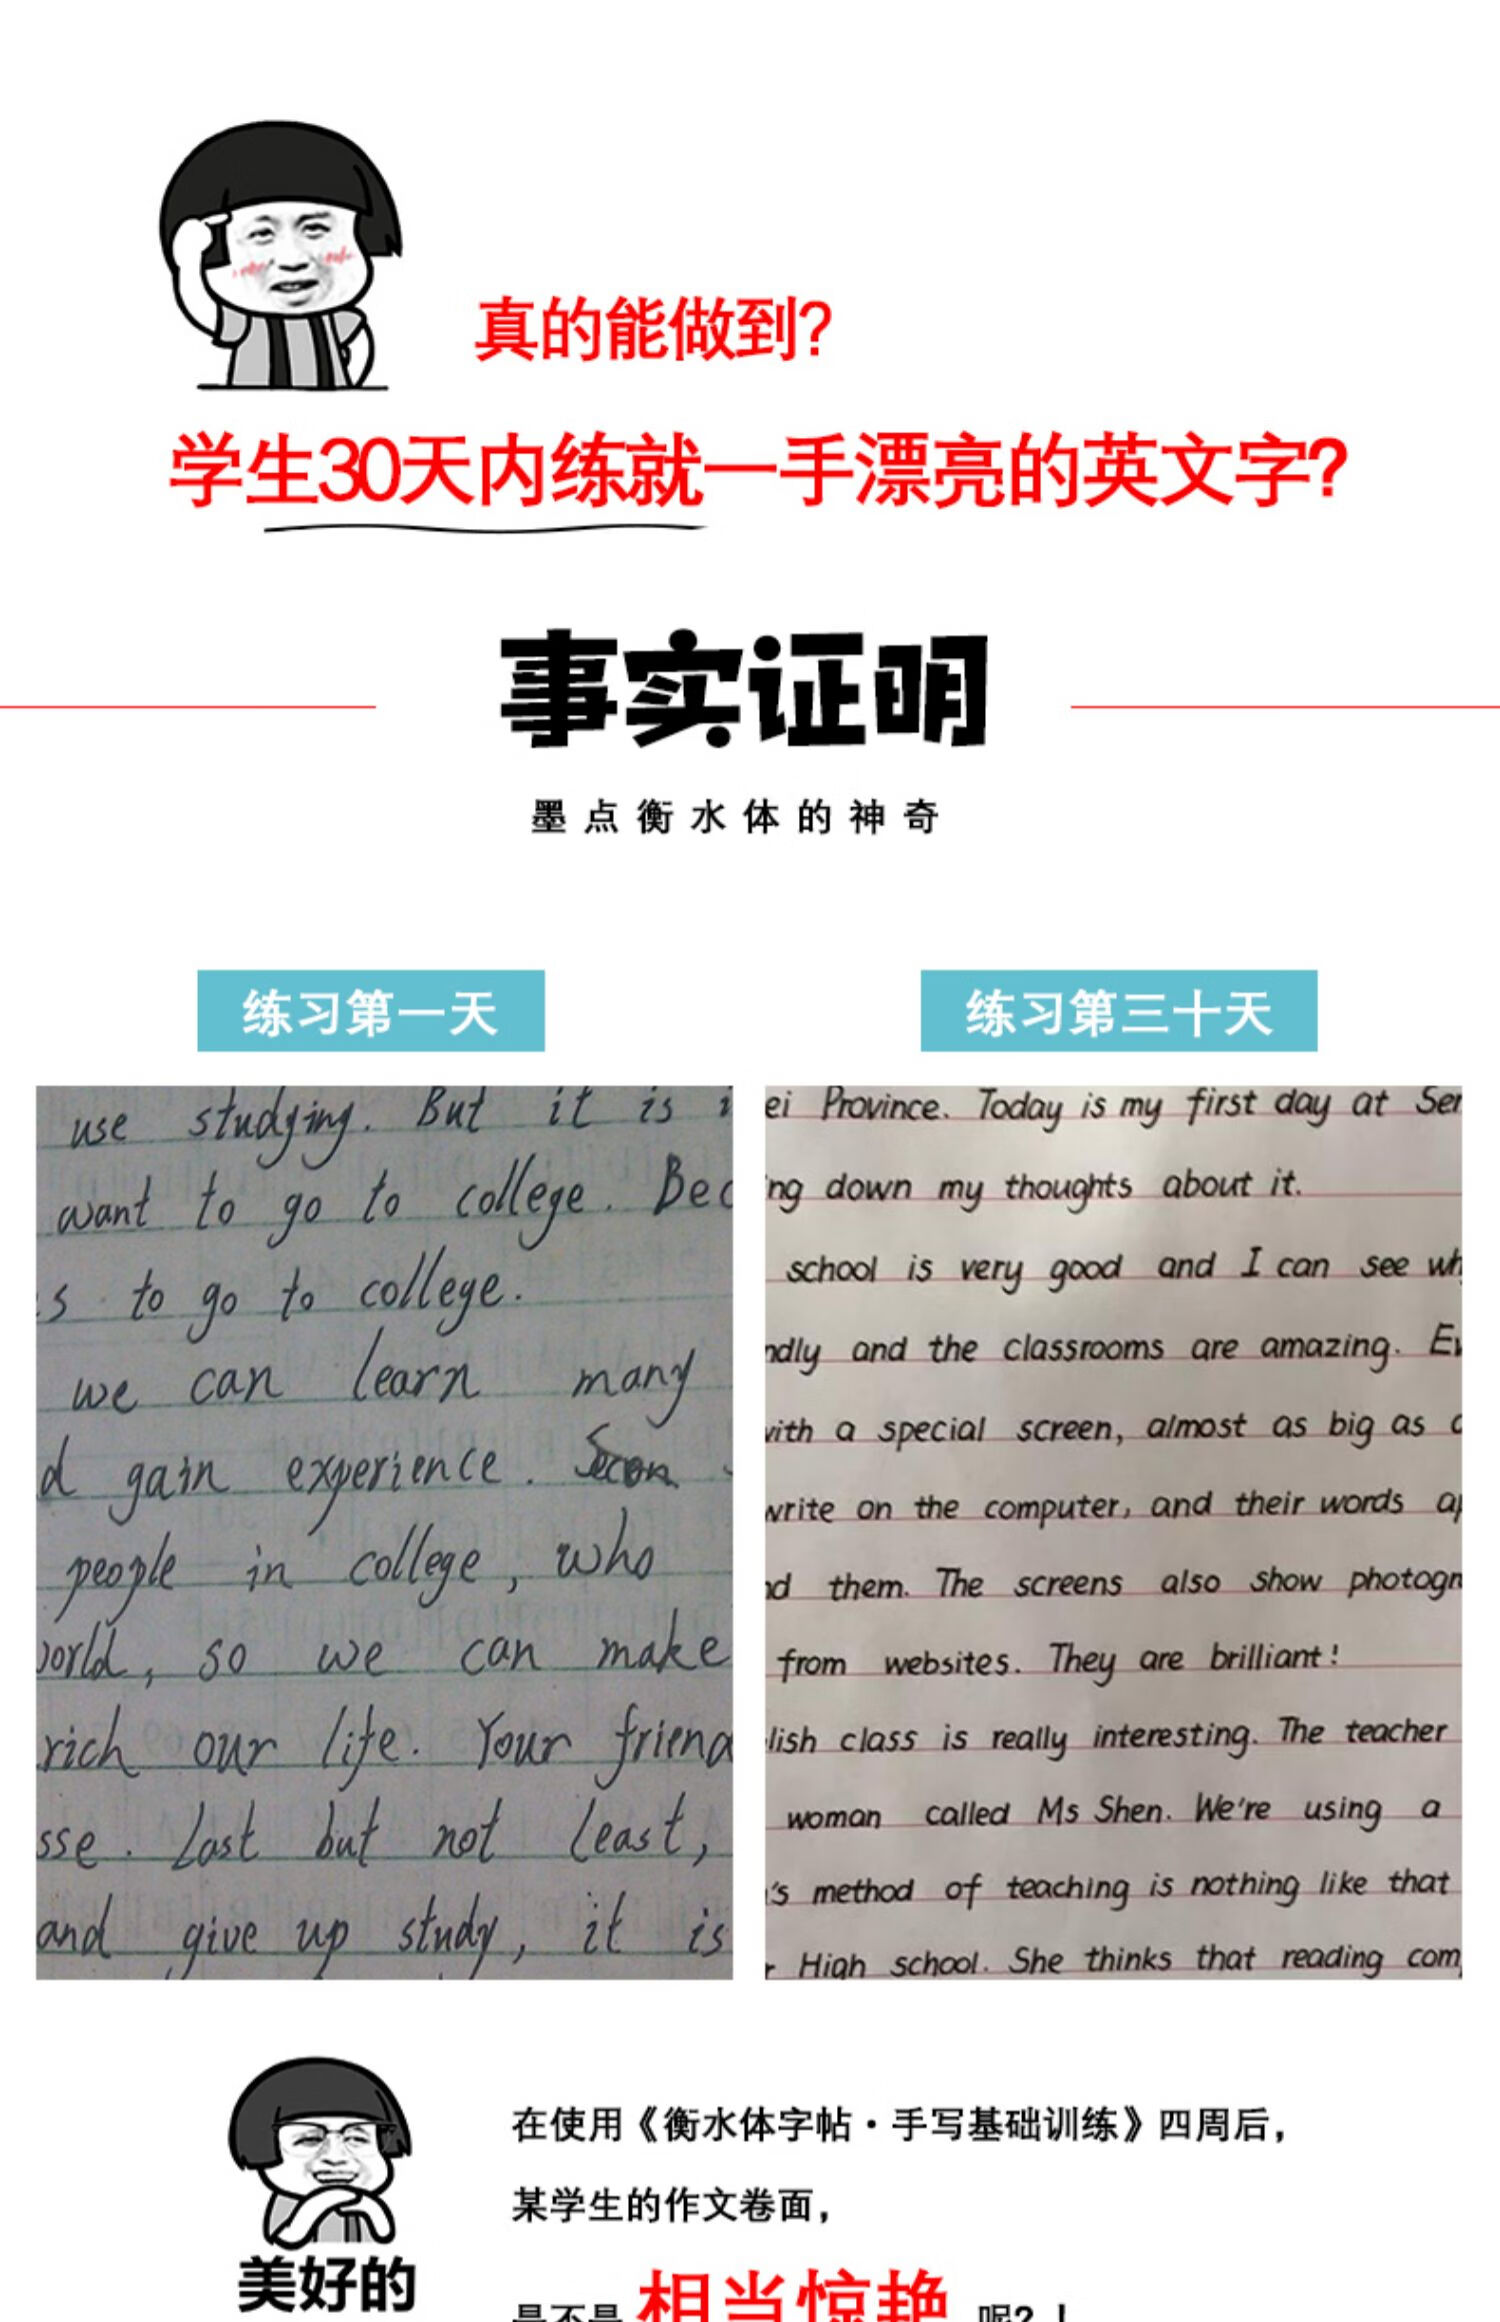 真的能做到?
学生30天内练就一手漂亮的英文字?
事实证明
墨点衡水体的神奇
练习第一天
use studying. But it is i
want to go to college. Bec
s to go to college.
we can learn many
d gain experience. Secon
people in college, who
world, so we can make
rich our life. Your friend
sse. Last but not least,
and give up study, it is
练习第三十天
ei Province. Today is my first day at Sen
ng down my thoughts about it.
school is very good and I can see wh
ndly and the classrooms are amazing. Ev
with a special screen, almost as big as a
write on the computer, and their words ap
nd them. The screens also show photogr
from websites. They are brilliant!
lish class is really interesting. The teacher
woman called Ms Shen. We're using a
's method of teaching is nothing like that
r High school. She thinks that reading com
在使用《衡水体字帖·手写基础训练》四周后，
某学生的作文卷面，
美好的
是不是 相当惊艳 呢?！